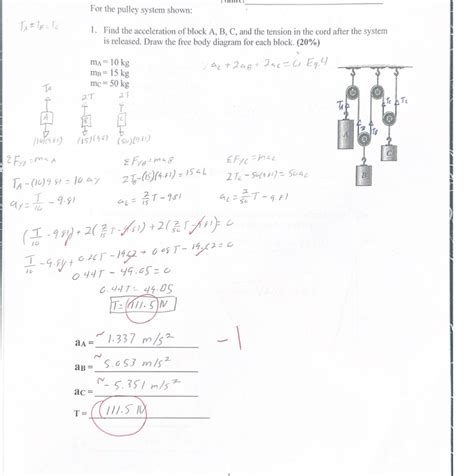 For the pulley system shown:
1. Find the acceleration of block A, B, C, and the tension in the cord after the system
is released. Draw the free body diagram for each block. (20%)
mA = 10 kg
mB = 15 kg
mC = 50 kg
+ 2aB + 2aC = 0 Eq. 4
2T 2T
A B C
(10)(9.81) (15)(9.81) (50)(9.81)
ΣFyA = maA ΣFyB = maB ΣFyC = maC
TA - (10)9.81 = 10 ay 2TB - (15)(9.81) = 15ab 2T - 50(9.81) = 50ac
ay = T/10 - 9.81 = 2/15 T - 9.81 ac = 2/50 T - 9.81
(T/10 - 9.81) + 2(2/15 T - 9.81) + 2(2/50 T - 9.81) = 0
T/10 - 9.81 + 0.26T - 19.62 + 0.08T - 19.62 = 0
0.44T - 49.05 = 0
0.44T = 49.05
T = 111.5 N
aA = ~ 1.337 m/s²
-1
aB = ~ 5.053 m/s²
aC = ~ -5.351 m/s²
T = 111.5 N